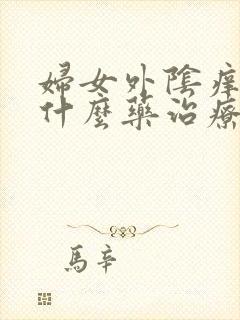 婦女外陰癢
什麼藥治療
馬辛